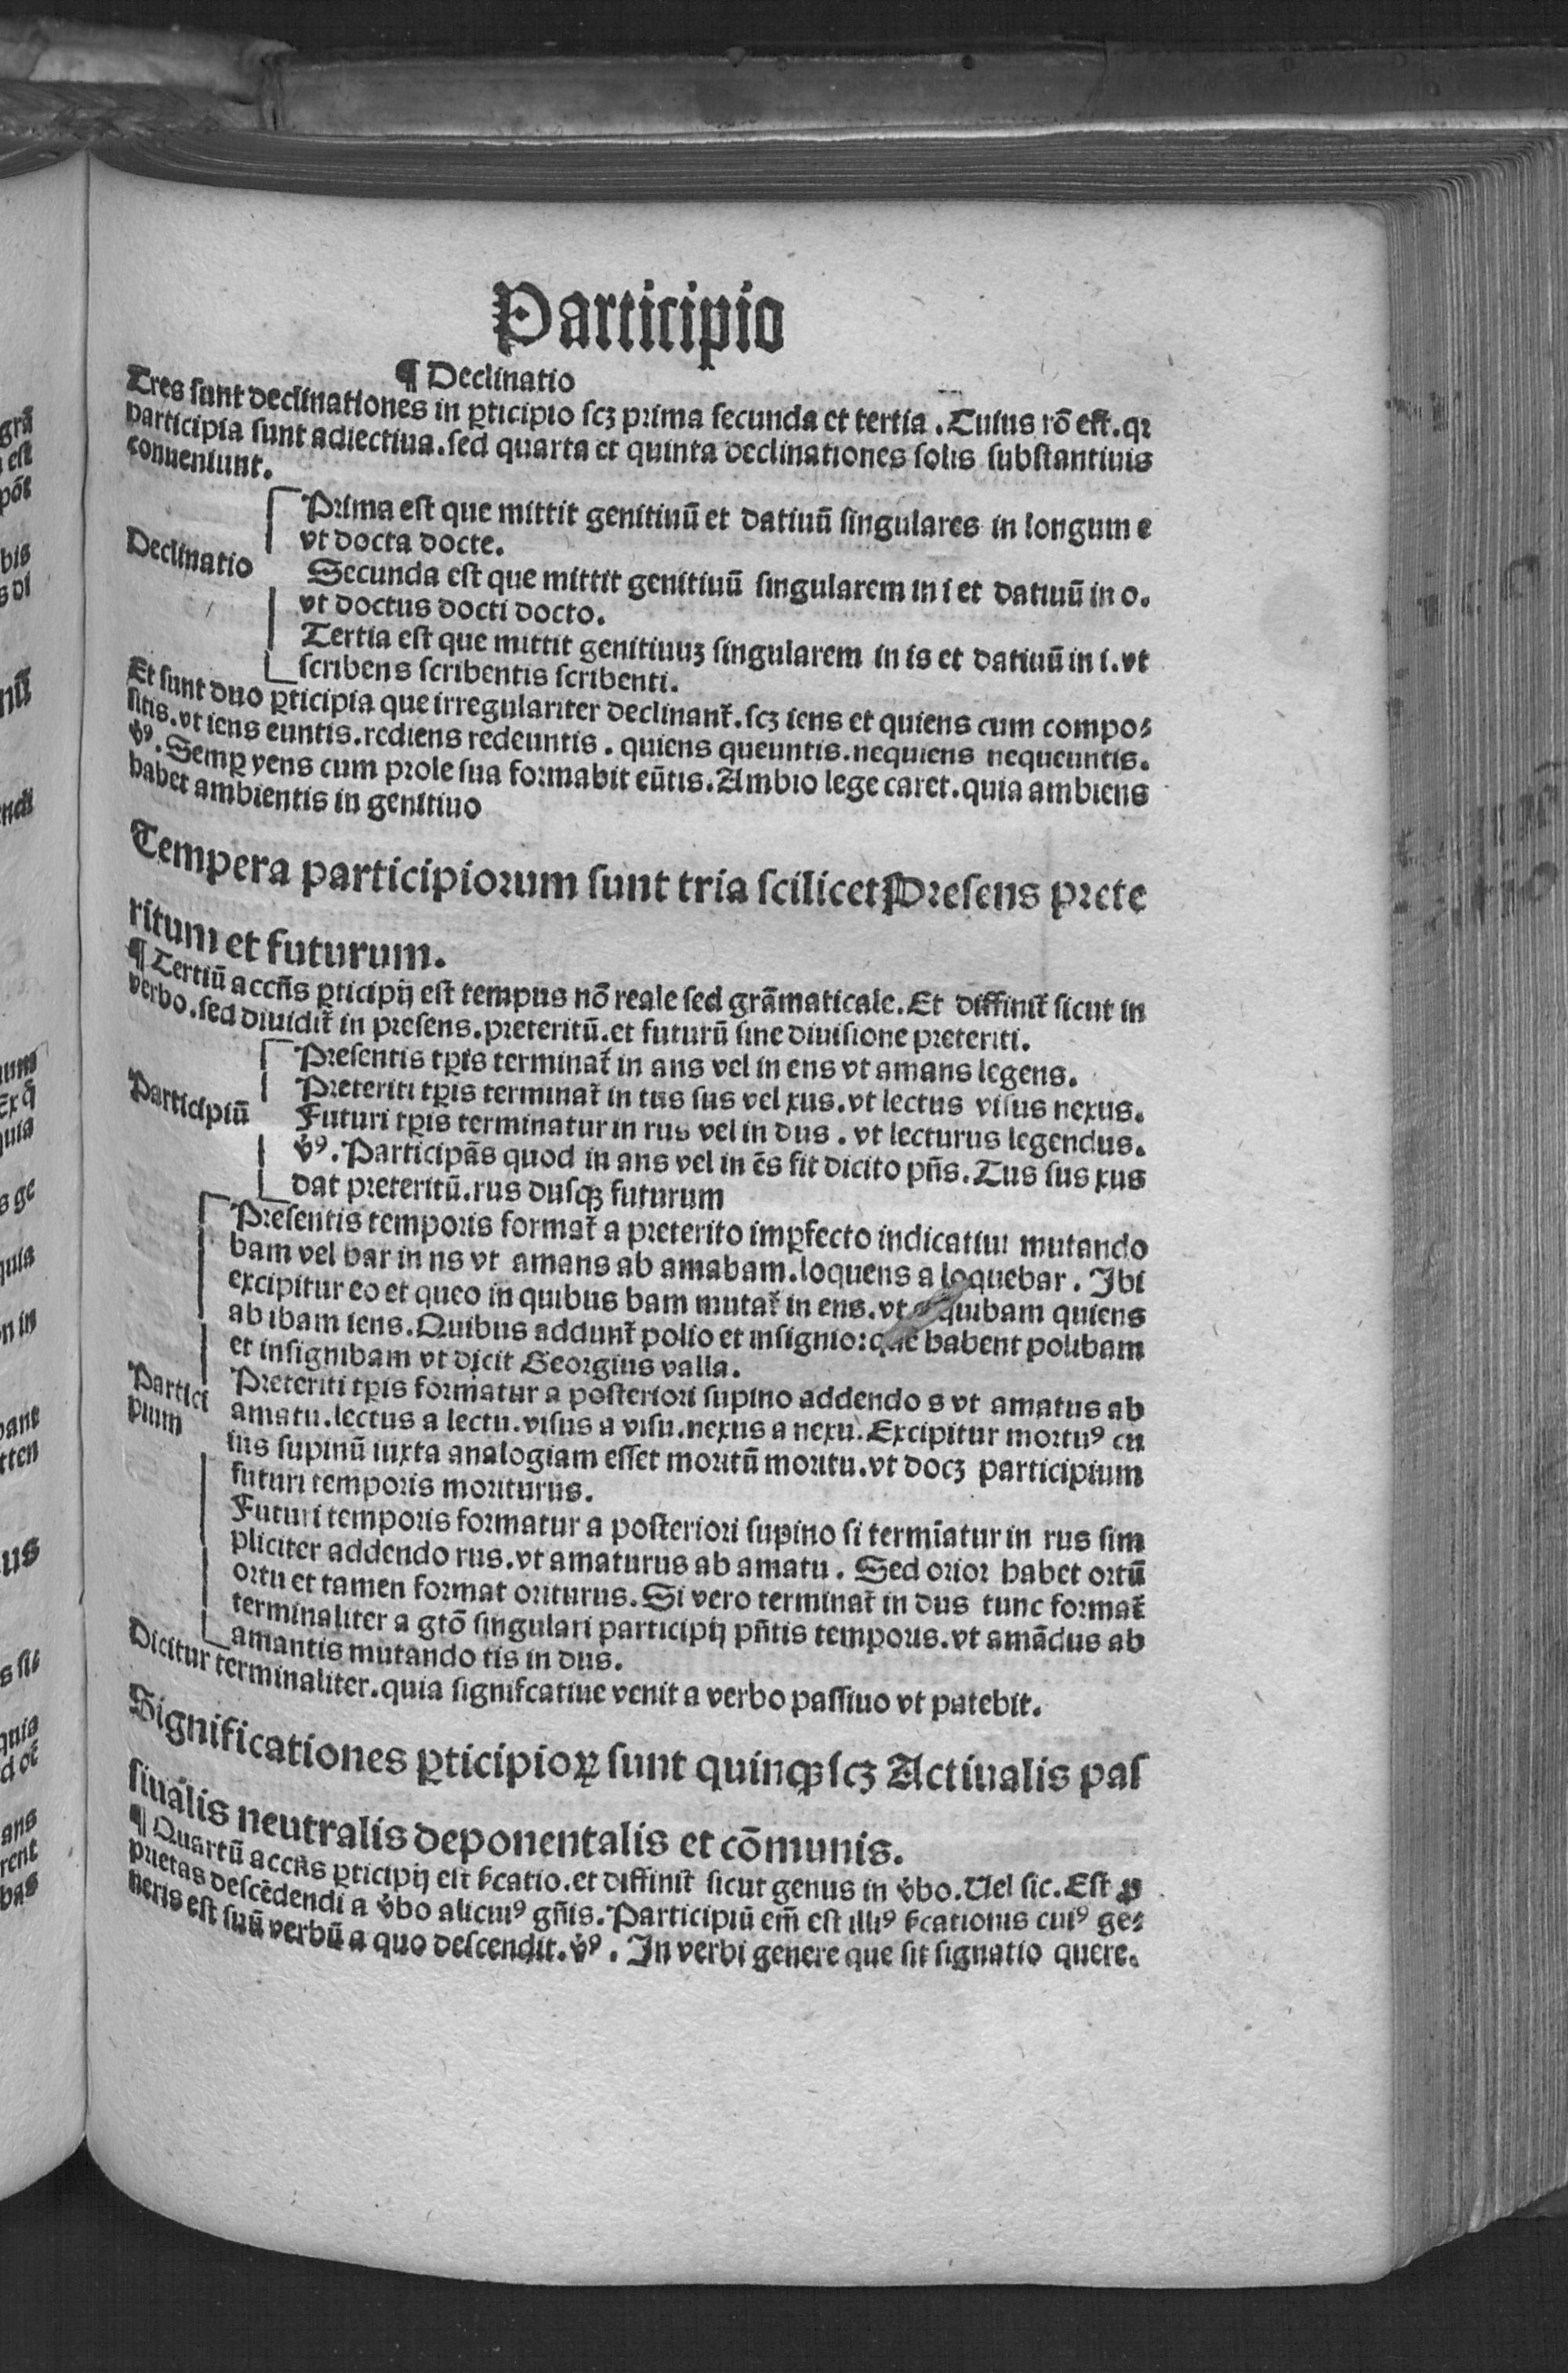 Participio
¶ Declinatio
Tres sunt declinationes in ꝑticipio scꝫ prima secunda et tertia. Cuius rō est. qꝛ
participia sunt adiectiua. sed quarta et quinta declinationes solis substantiuis
conueniunt.
Prima est que mittit genitiuū et datiuū singulares in longum e
vt docta docte.
Declinatio
Secunda est que mittit genitiuū singularem in i et datiuū in o.
vt doctus docti docto.
Tertia est que mittit genitiuuꝫ singularem in is et datiuū in i. vt
scribens scribentis scribenti.
Et sunt duo ꝑticipia que irregulariter declinant᷑. scꝫ iens et quiens cum compo⸗
sitis. vt iens euntis. rediens redeuntis. quiens queuntis. nequiens nequeuntis.
v̾ꝰ. Semꝑ yens cum prole sua formabit eūtis. Ambio lege caret. quia ambiens
habet ambientis in genitiuo
Tempera participiorum sunt tria scilicet Presens prete
ritum et futurum.
¶ Tertiū accn̄s ꝑticipij est tempus nō reale sed grāmaticale. Et diffinit᷑ sicut in
verbo. sed diuidit᷑ in presens. preteritū. et futurū sine diuisione preteriti.
Presentis tꝑis terminat᷑ in ans vel in ens vt amans legens.
Preteriti tꝑis terminat᷑ in tus sus vel xus. vt lectus visus nexus.
Participiū
Futuri tꝑis terminatur in rus vel in dus. vt lecturus legendus.
v̾ꝰ. Participās quod in ans vel in ēs fit dicito pn̄s. Tus sus xus
dat preteritū. rus dusqꝫ futurum
Presentis temporis format᷑ a preterito imꝑfecto indicatiui mutando
bam vel bar in ns vt amans ab amabam. loquens a loquebar. Ibi
excipitur eo et queo in quibus bam mutat᷑ in ens. vt a quibam quiens
ab ibam iens. Quibus addunt᷑ polio et insignio: que habent polibam
et insignibam vt dicit Georgius valla.
Partici
pium
Preteriti tꝑis formatur a posteriori supino addendo s vt amatus ab
amatu. lectus a lectu. visus a visu. nexus a nexu. Excipitur mortuꝰ cu
ius supinū iuxta analogiam esset moritū moritu. vt docꝫ participium
futuri temporis moriturus.
Futuri temporis formatur a posteriori supino si termīatur in rus sim
pliciter addendo rus. vt amaturus ab amatu. Sed orior habet ortū
ortu et tamen format oriturus. Si vero terminat᷑ in dus tunc format᷑
terminaliter a gtō singulari participij pn̄tis temporis. vt amādus ab
amantis mutando tis in dus.
Dicitur terminaliter. quia signifcatiue venit a verbo passiuo vt patebit.
Significationes ꝑticipioꝝ sunt quinqꝫ scꝫ Actiualis pas
siualis neutralis deponentalis et cōmunis.
¶ Quartū accn̄s ꝑticipij est ſ̾catio. et diffinit᷑ sicut genus in v̾bo. Uel sic. Est ꝓ
prietas descēdendi a v̾bo alicuiꝰ gn̄is. Participiū em̄ est illiꝰ ſ̾cationis cuiꝰ ge⸗
neris est suū verbū a quo descendit. v̾ꝰ. In verbi genere que sit signatio quere.